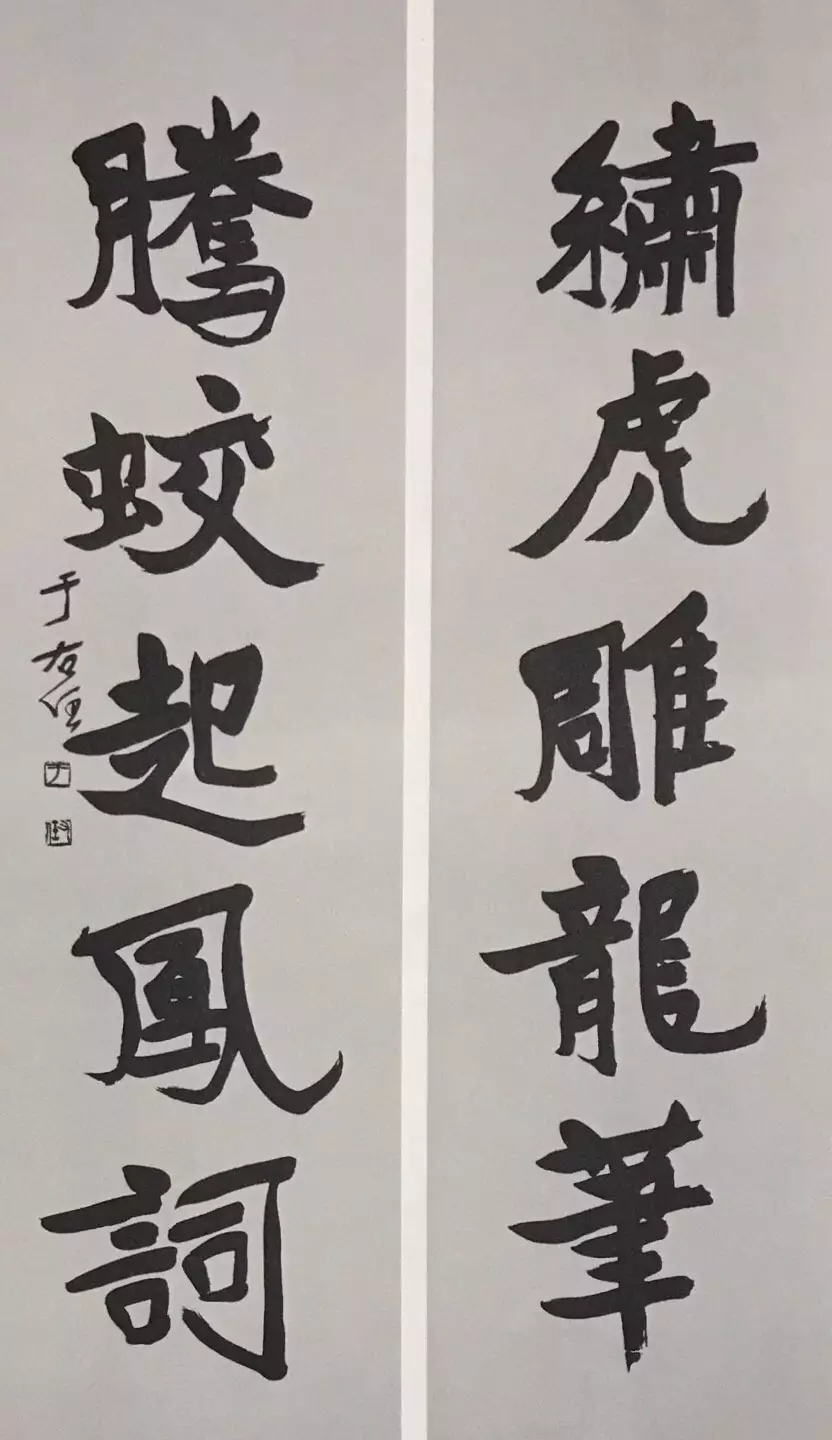 繡虎雕龍筆
騰蛟起鳳詞
于右任